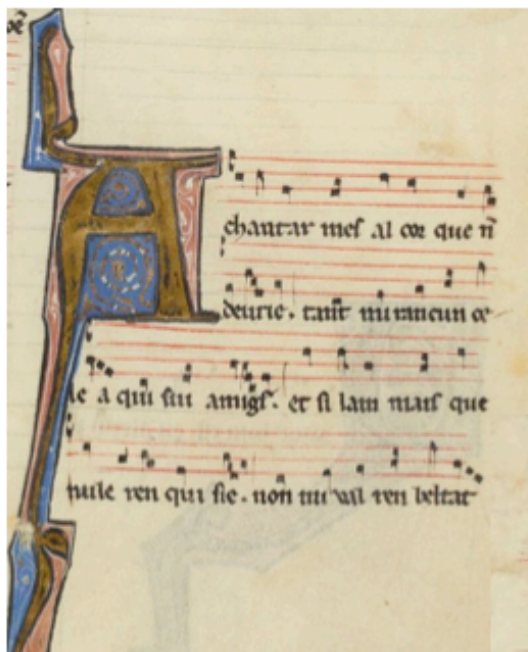 A chantar mes al cor que n̄
deurie. tant mi rancun ce
le a qui sui amigs. et si lam mais que
nule ren qui sie. non mi val ren beltat